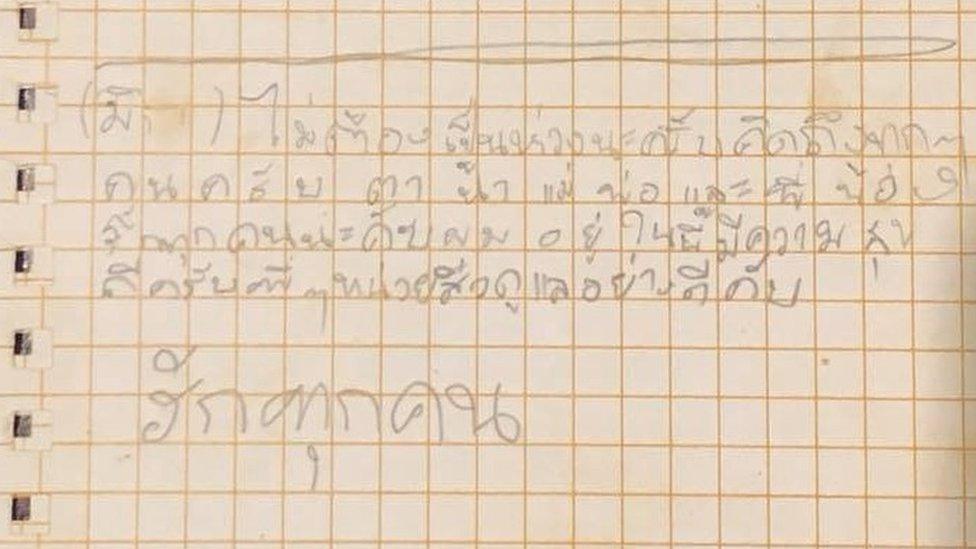 (มิ ) ไม่ต้องเป็นห่วงนะครับ คิดถึงมากๆ
คนครับ ตา น้า แม่ พ่อ และ พี่ น้อง
รักทุกคนนะคับ ผม อยู่ ในนี้ มีความ สุข
ดีครับ พี่ๆ หน่วยซีลดูแลอย่างดีคับ
รักทุกคน